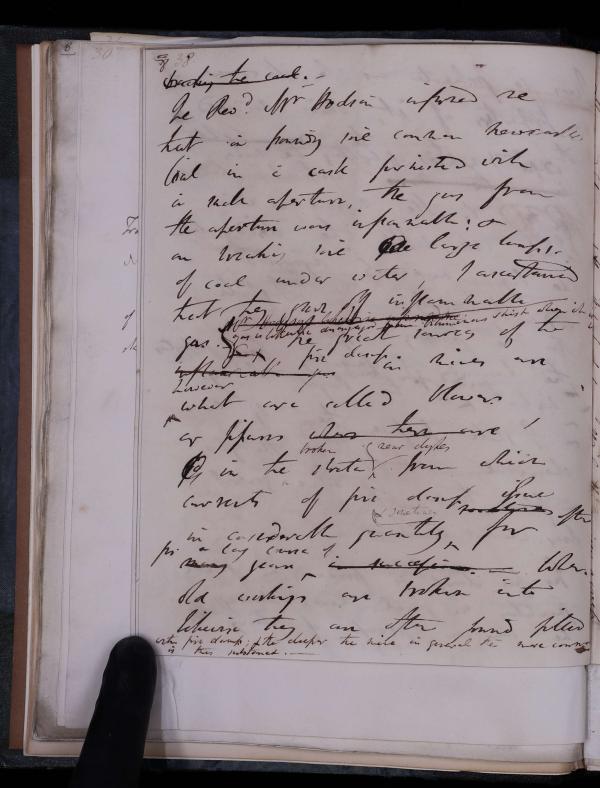 38
breaking the coal. -
The Revd. Mr Hodson informed me
that in pounding some common Newcastle
Coal in a cask furnished with
a small aperture, the gas from
the aperture was inflammable; &
on breaking some large lumps
of coal under water I ascertained
that they gave off inflammable
gas. The great sources of the
fire damp in mines are
however
what are called blowers
or fissures
in the strata from which
broken near dykes
currents of fire damp issue
& sometimes
in considerable quantity for
a long course of
years. When
old workings are broken into
likewise they are often found filled
with fire damp; & the deeper the mine in general the more common
is this substance. -